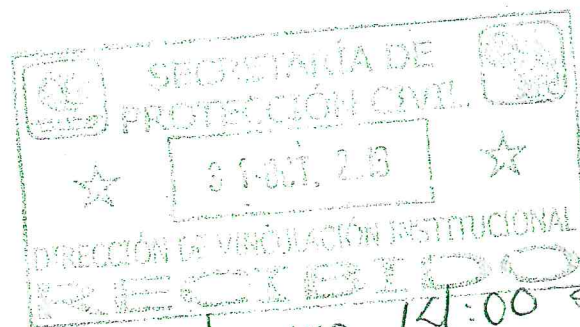 SECRETARÍA DE
PROTECCIÓN CIVIL
OCT.
DIRECCIÓN DE VINCULACIÓN INSTITUCIONAL
RECIBIDO
14:00